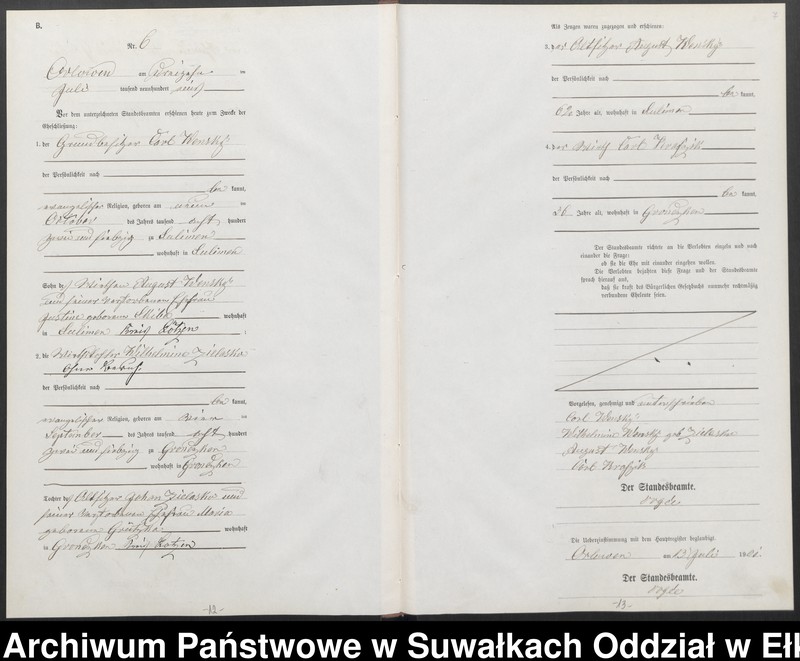 B.
Nr. 6
Orlowen am dreizehn ten
Juli tausend neunhundert eins
Vor dem unterzeichneten Standesbeamten erschienen heute zum Zwecke der
Eheschließung:
1. der Grundbesitzer Carl Wensky
der Persönlichkeit nach
be kannt,
evangelischer Religion, geboren am neun ten
October des Jahres tausend acht hundert
zwei und siebzig zu Sulimen
wohnhaft in Sulimen
Sohn des Wirthen August Wensky
und seiner verstorbenen Ehefrau
Justine geborenen wohnhaft
in Sulimen Kreis Lötzen
2. die Wirthstochter Wilhelmine Zielaska
ohne Beruf
der Persönlichkeit nach
be kannt,
evangelischer Religion, geboren am vier ten
September des Jahres tausend acht hundert
zwei und siebzig zu Grondzken
wohnhaft in Grondzken
Tochter des Altsitzer Johan Zielaska und
seiner verstorbenen Ehefrau Maria
geborenen wohnhaft
in Grondzken Kreis Lötzen
-12-
7
Als Zeugen waren zugezogen und erschienen:
3. der Altsitzer August Wensky
der Persönlichkeit nach
be kannt,
62 Jahre alt, wohnhaft in Sulimen
4. der Wirth Carl Krafzik
der Persönlichkeit nach
be kannt,
26 Jahre alt, wohnhaft in Grondzken
Der Standesbeamte richtete an die Verlobten einzeln und nach
einander die Frage:
ob sie die Ehe mit einander eingehen wollen.
Die Verlobten bejahten diese Frage und der Standesbeamte
sprach hierauf aus,
daß sie kraft des Bürgerlichen Gesetzbuchs nunmehr rechtmäßig
verbundene Eheleute seien.
Vorgelesen, genehmigt und unterschrieben
Carl Wensky
Wilhelmine Wensky geb. Zielaska
August Wensky
Carl Krafzik
Der Standesbeamte.
Die Uebereinstimmung mit dem Hauptregister beglaubigt.
Orlowen am 13 Juli 1901.
Der Standesbeamte.
-13-
Archiwum Państwowe w Suwałkach Oddział w Ełk